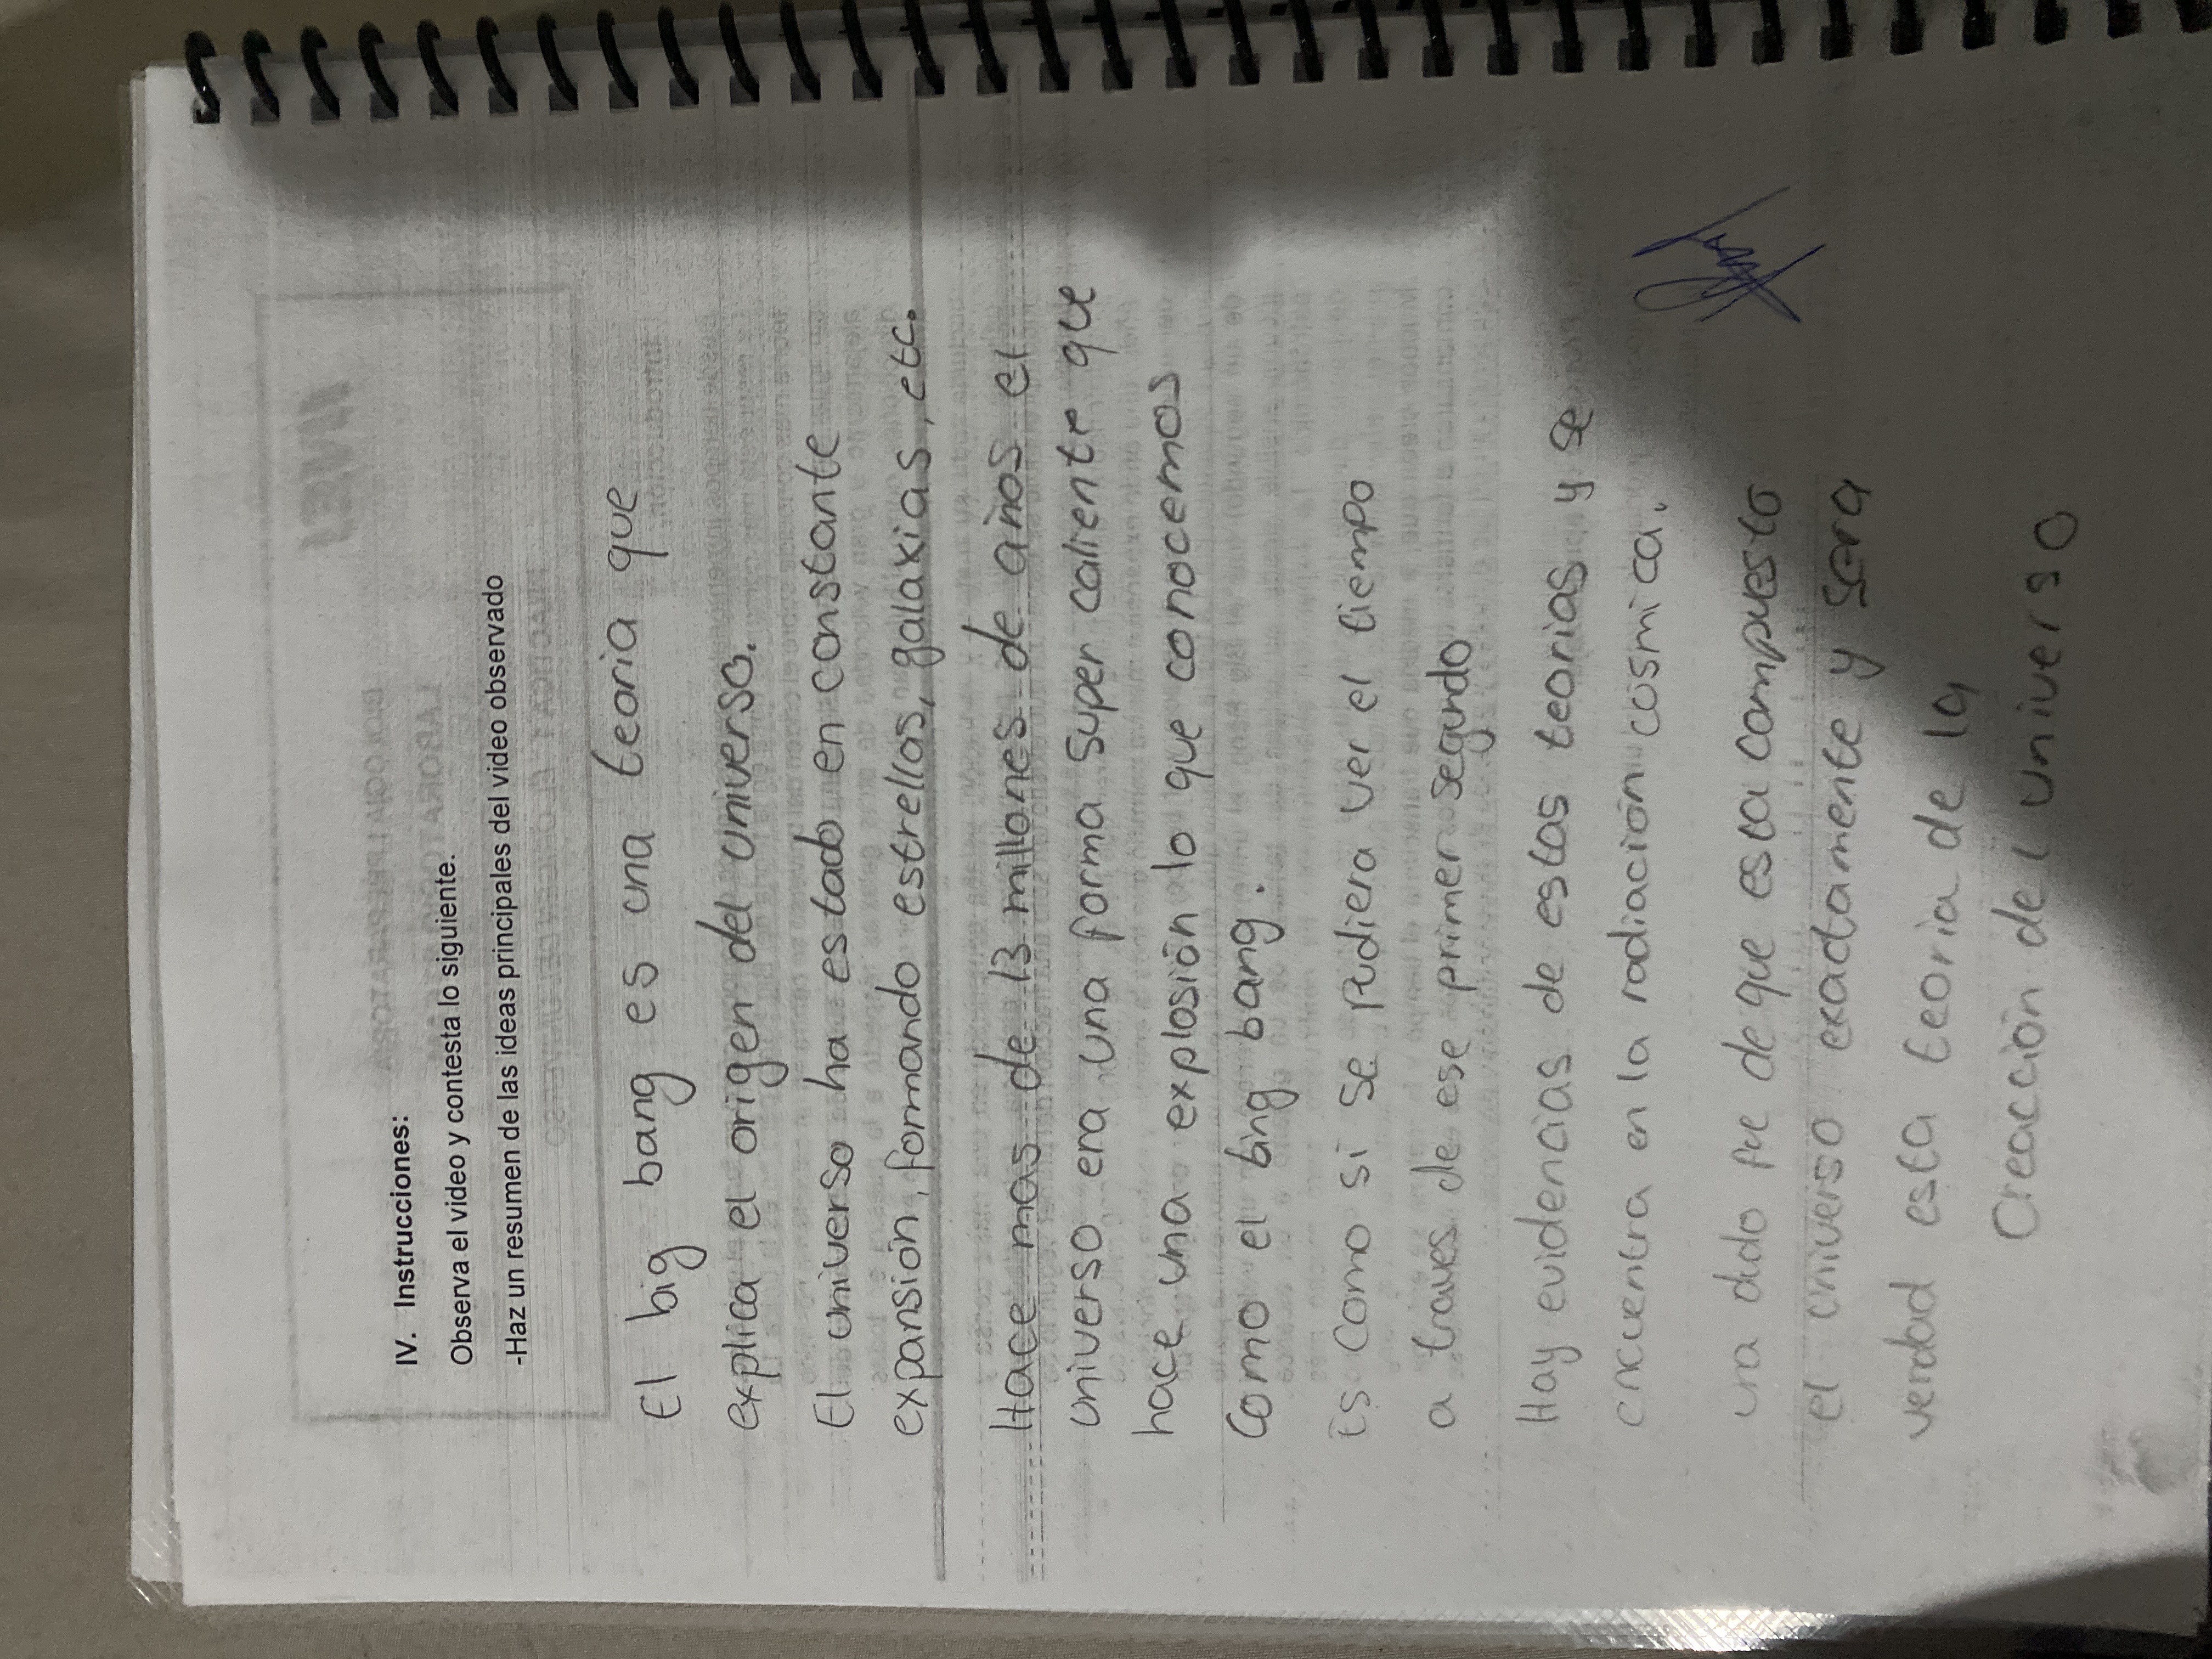 IV. Instrucciones:
Observa el video y contesta lo siguiente.
-Haz un resumen de las ideas principales del video observado
El big bang es una teoria que
explica el origen del universo.
El universo ha estado en constante
expansión, formando estrellas, galaxias, etc.
Hace mas de 13 millones de años el
universo era una forma super caliente que
hace una explosión lo que conocemos
como el bing bang.
Es como si se pudiera ver el tiempo
a traves de ese primer segundo
Hay evidencias de estas teorias y se
encuentra en la radiación cosmica.
una duda fue de que esta compuesto
el universo exactamente y sera
verdad esta teoria de la
Creacción del universo